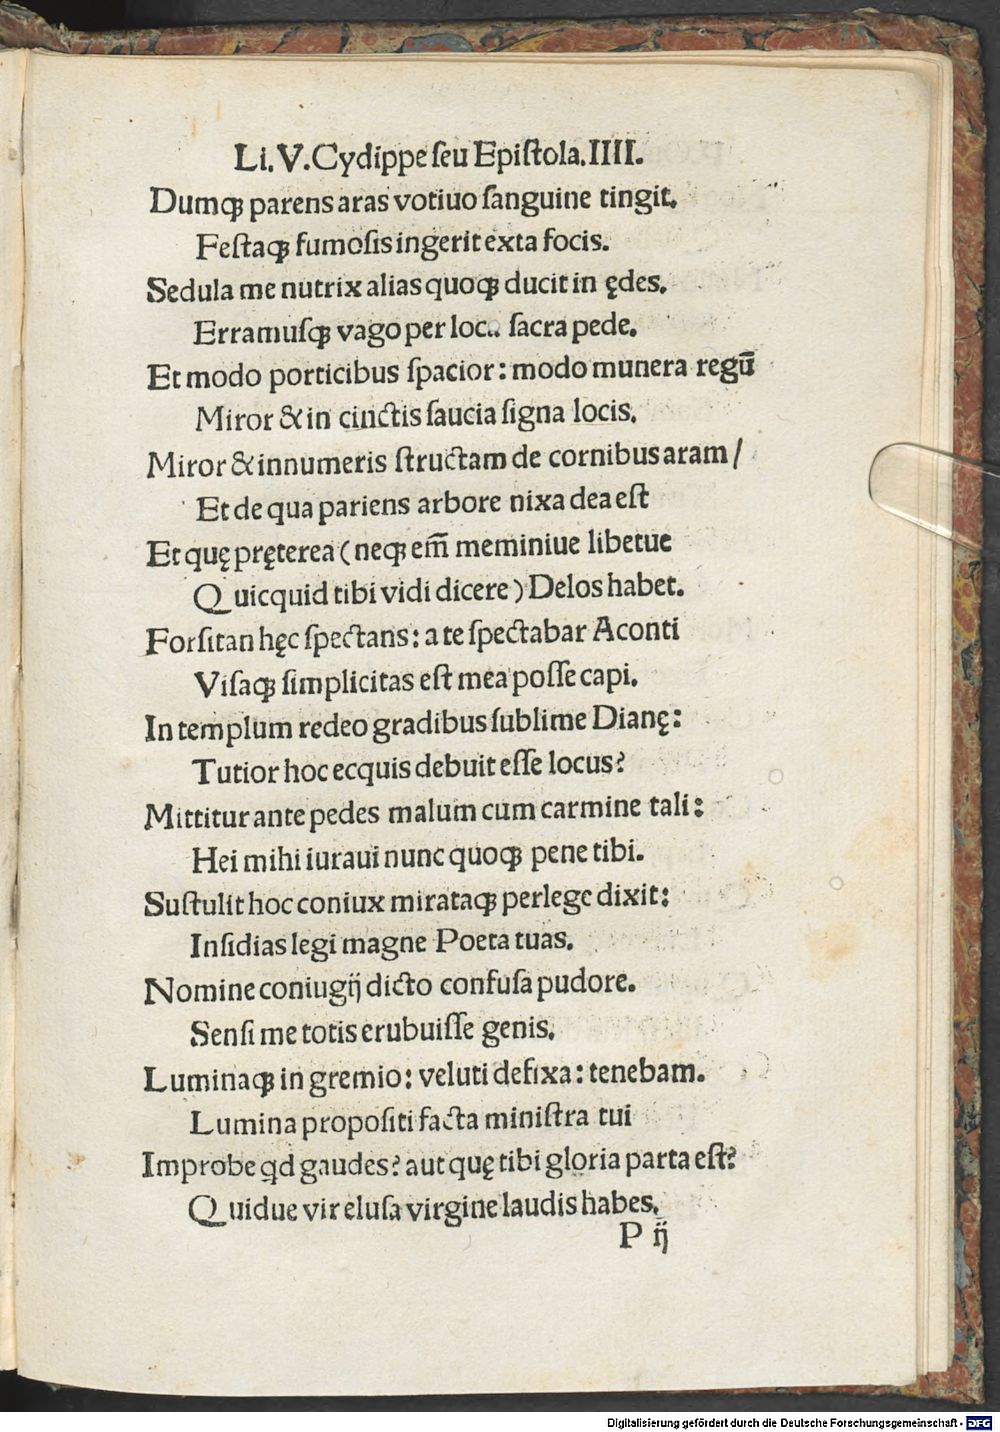 Li. V. Cydippe seu Epiſtola. IIII.
Dumqꝫ parens aras votiuo ſanguine tingit.
Feſtaqꝫ fumoſis ingerit exta focis.
Sedula me nutrix alias quoqꝫ ducit in ędes.
Erramuſqꝫ vago per loc.. ſacra pede.
Et modo porticibus ſpacior: modo munera regū
Miror & in cinctis ſaucia ſigna locis.
Miror & innumeris ſtructam de cornibus aram /
Et de qua pariens arbore nixa dea eſt
Et quę pręterea (neqꝫ em̄ meminiue libetue
Quicquid tibi vidi dicere) Delos habet.
Forſitan hęc ſpectans: a te ſpectabar Aconti
Viſaqꝫ ſimplicitas eſt mea poſſe capi.
In templum redeo gradibus ſublime Dianę:
Tutior hoc ecquis debuit eſſe locus?
Mittitur ante pedes malum cum carmine tali:
Hei mihi iuraui nunc quoqꝫ pene tibi.
Suſtulit hoc coniux mirataqꝫ perlege dixit:
Inſidias legi magne Poeta tuas.
Nomine coniugij dicto confuſa pudore.
Senſi me totis erubuiſſe genis.
Luminaqꝫ in gremio: veluti defixa: tenebam.
Lumina propoſiti facta miniſtra tui
Improbe qd gaudes? aut quę tibi gloria parta eſt?
Quidue vir eluſa virgine laudis habes.
P ij
Digitalisierung gefördert durch die Deutsche Forschungsgemeinschaft - DFG